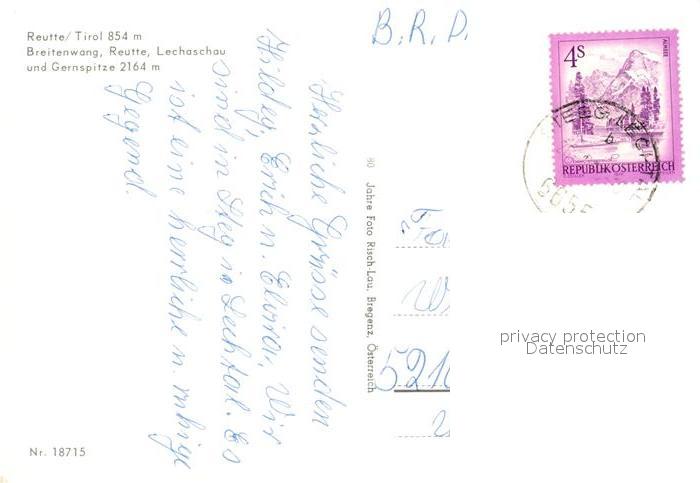 Reutte/Tirol 854 m
Breitenwang, Reutte, Lechaschau
und Gernspitze 2164 m
B.R.D.
4S
ALMSEE
REPUBLIK ÖSTERREICH
Herzliche Grüsse senden
Hildeg, Erich u. Elvira, Wir
sind in Steg in Lechtal. Es
ist eine herrliche u. ruhige
Gegend.
80 Jahre Foto Risch-Lau, Bregenz, Österreich
5210
privacy protection
Datenschutz
Nr. 18715